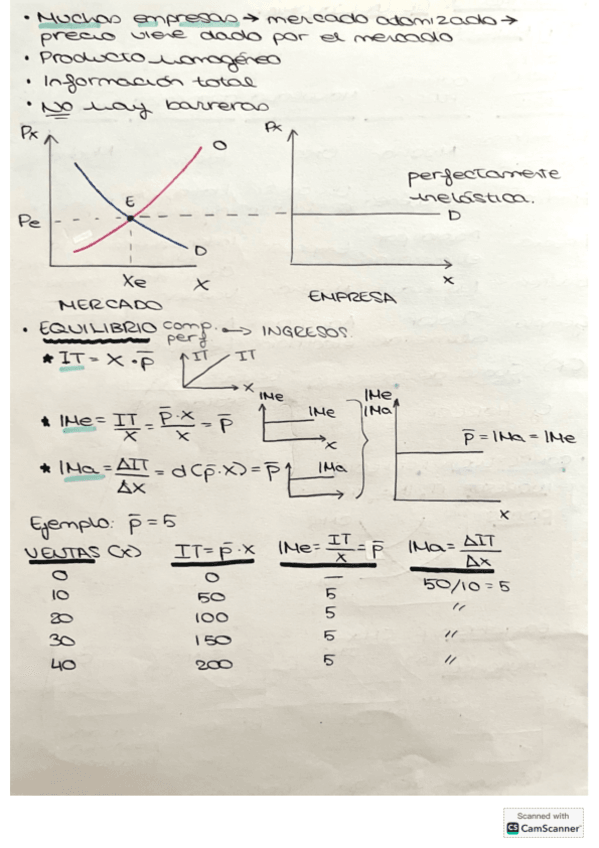 • Muchas empresas → mercado atomizado →
precio viene dado por el mercado
• Producto homogéneo
• Información total
• NO hay barreras
Px
O
E
Pe
D
Xe
X
MERCADO
Px
perfectamente
inelástica.
D
x
EMPRESA
• EQUILIBRIO comp. perf → INGRESOS.
* IT = X · p̄
IT
IT
x
* IMe = IT/X = p̄·x/x = p̄
IMe
IMe
x
* IMa = ΔIT/Δx = d(p̄·x) = p̄
IMa
IMe
IMa
p̄ = IMa = IMe
x
Ejemplo: p̄ = 5
VENTAS (x) IT = p̄·x IMe = IT/x = p̄ IMa = ΔIT/Δx
0 0 — 50/10 = 5
10 50 5 "
20 100 5 "
30 150 5 "
40 200 5 "
Scanned with
CS CamScanner